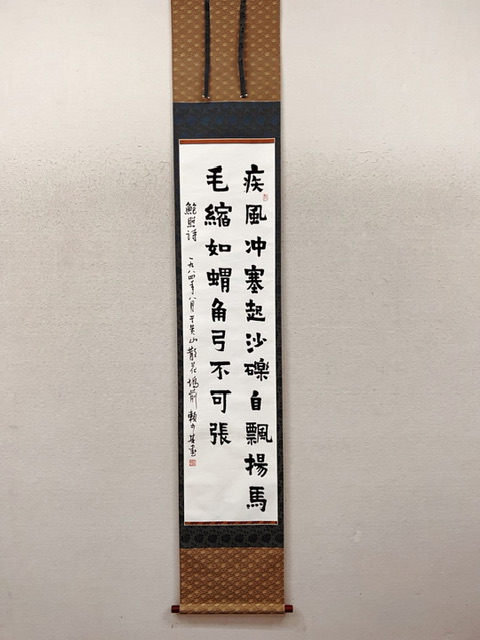 疾風冲塞起沙礫自飄揚馬
毛縮如蝟角弓不可張
鮑照诗
一九八四年八月于黄山散花塢前 賴少其書